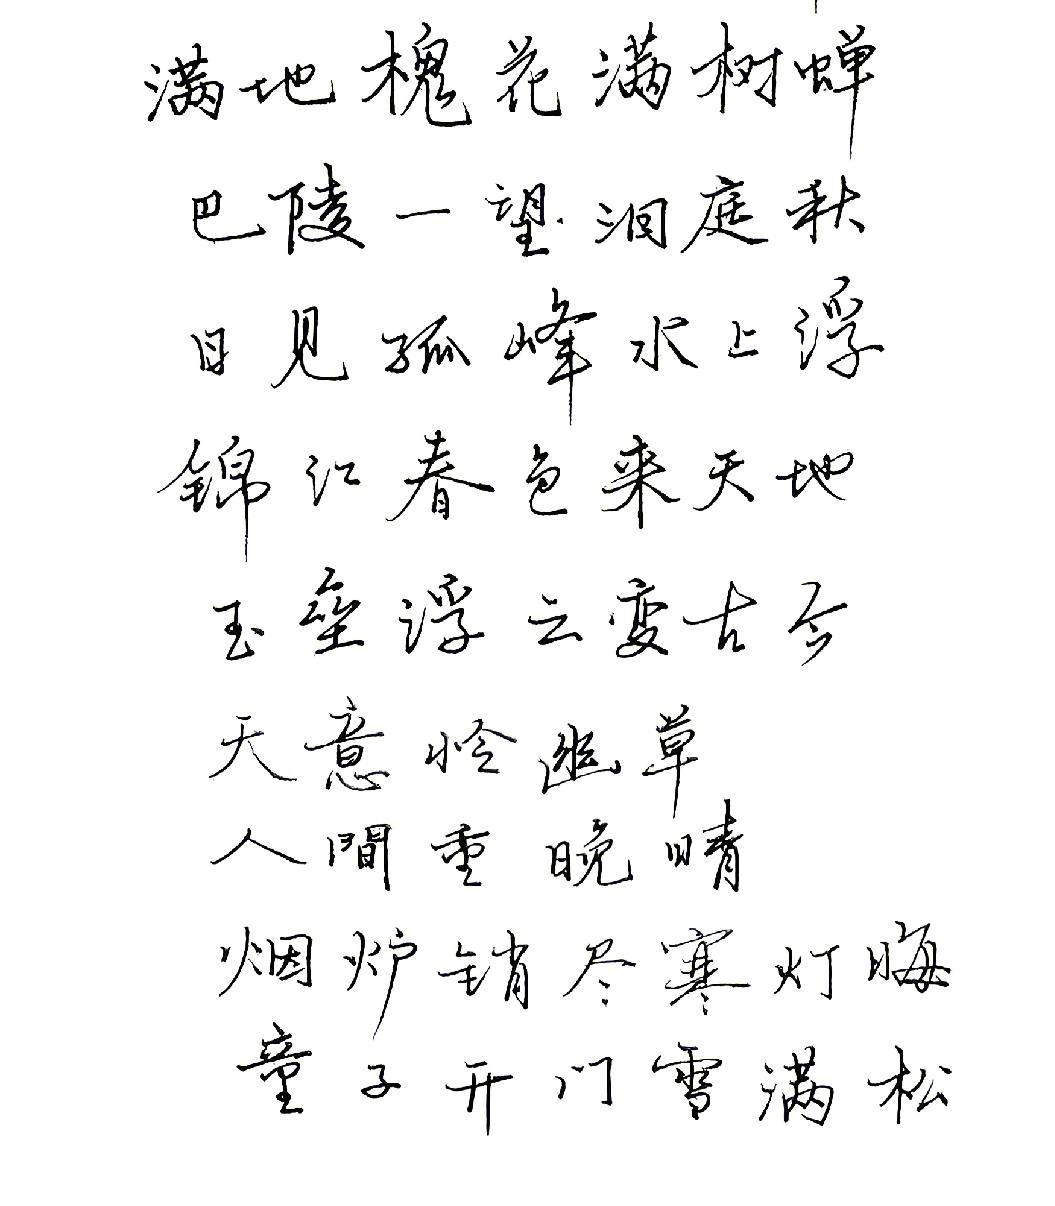 满地槐花满树蝉
巴陵一望洞庭秋
日见孤峰水上浮
锦江春色来天地
玉垒浮云变古今
天意怜幽草
人間重晚晴
烟炉销尽寒灯晦
童子开门雪满松